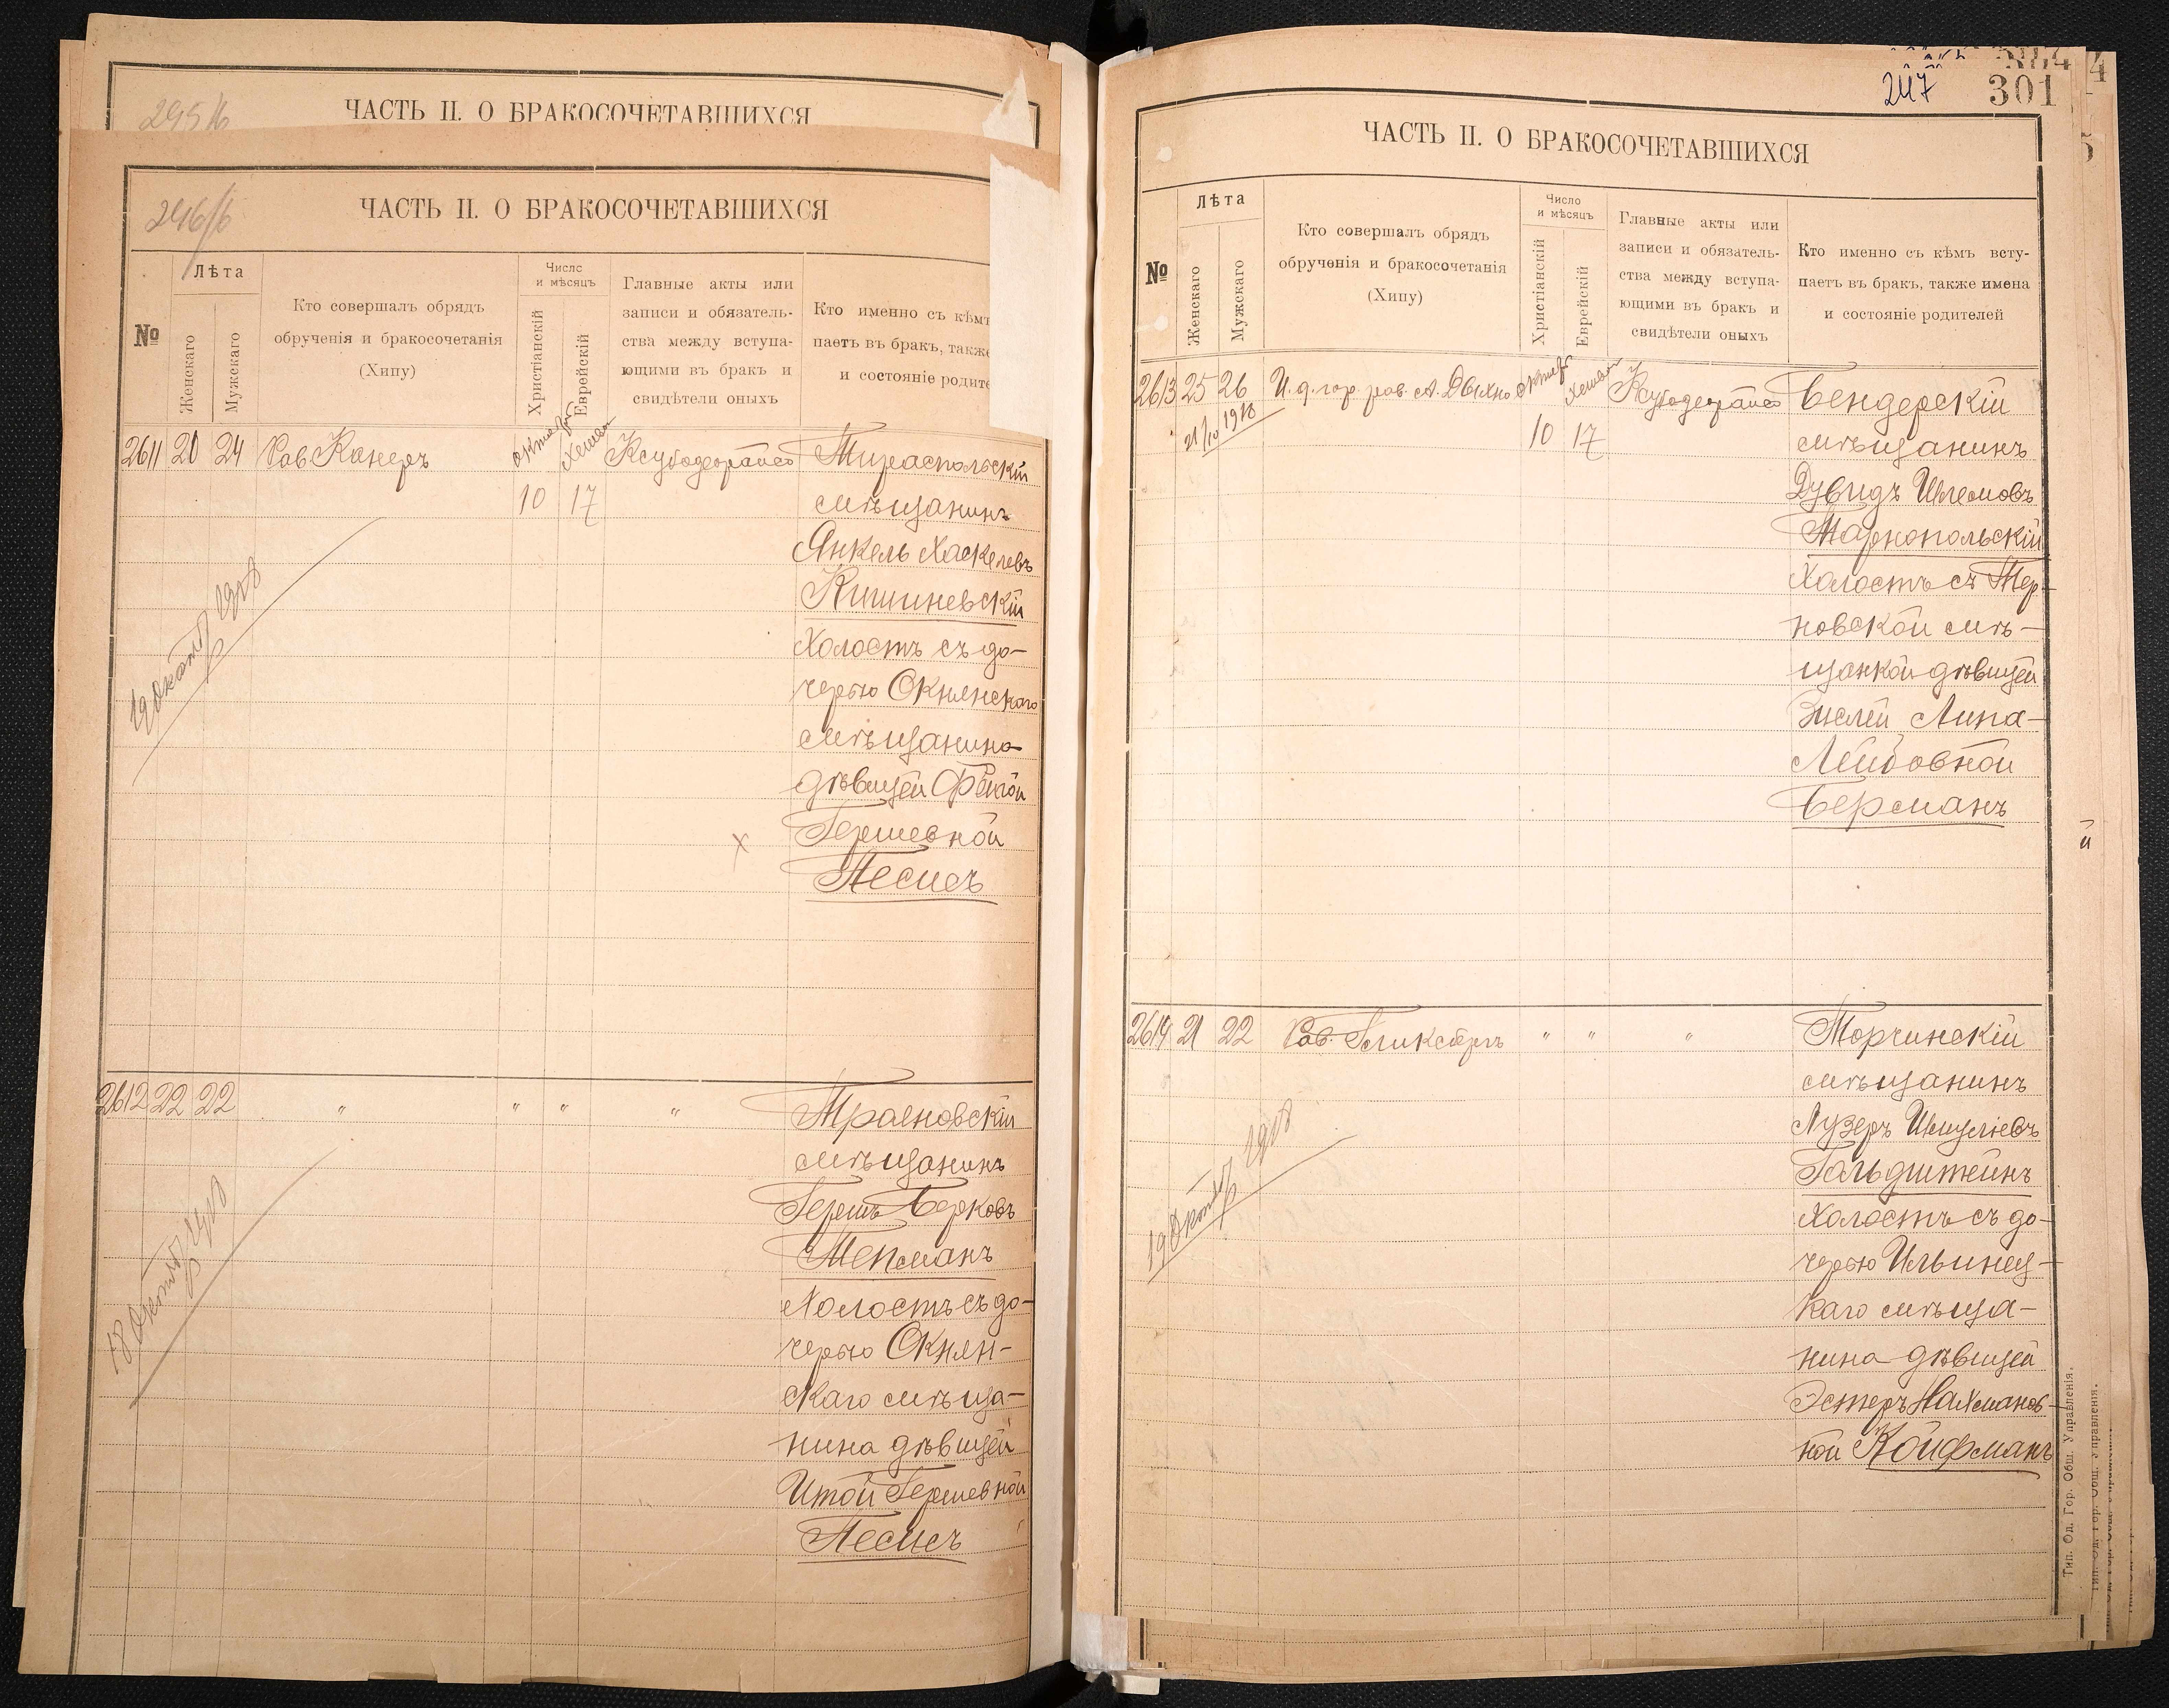 295/б
ЧАСТЬ II. О БРАКОСОЧЕТАВШИХСЯ
246/б
ЧАСТЬ II. О БРАКОСОЧЕТАВШИХСЯ
№
Лѣта
Женскаго
Мужскаго
Кто совершалъ обрядъ
обрученія и бракосочетанія
(Хипу)
Число
и мѣсяцъ
Христіанскій
Еврейскій
Главные акты или
записи и обязатель-
ства между вступа-
ющими въ бракъ и
свидѣтели оныхъ
Кто именно съ кѣмъ
паетъ въ бракъ, также
и состояніе родите
2611 20 24 Рав Канеръ
10 17
Тираспольскій
мѣщанинъ
Янкель Хаскелевъ
Кишиневскій
Холостъ съ до-
черью Окнянскаго
мѣщанина
дѣвицей
Гершевной
х
Песисъ
19 Октяб 1908
2612 22 22 " " " "
Трояновскій
мѣщанинъ
Гершъ Берковъ
Мепманъ
Холостъ съ до-
черью Окнян-
скаго мѣща-
нина дѣвицей
Итой Гершевной
Песисъ
18 Октяб 1908
247
301
ЧАСТЬ II. О БРАКОСОЧЕТАВШИХСЯ
№
Лѣта
Женскаго
Мужскаго
Кто совершалъ обрядъ
обрученія и бракосочетанія
(Хипу)
Число
и мѣсяцъ
Христіанскій
Еврейскій
Главные акты или
записи и обязатель-
ства между вступа-
ющими въ бракъ и
свидѣтели оныхъ
Кто именно съ кѣмъ всту-
паетъ въ бракъ, также имена
и состояніе родителей
2613 25 26 И. д. гор. рав. А. Дыхно
10 17
21/10 1910
Бендерскій
мѣщанинъ
Дувидъ Шлемовъ
Тарнопольскій
Холостъ съ Тер-
новской мѣ-
щанкой дѣвицей
Зислей Липа-
Лейбовной
Берманъ
2614 21 22 Рав. Гликсбергъ " " "
Торчинскій
мѣщанинъ
Лузеръ Шмуліевъ
Гольдштейнъ
Холостъ съ до-
черью Ильинец-
каго мѣща-
нина дѣвицей
Эстеръ Нахманов-
ной Койфманъ
19 Октяб 1908
Тип. Од. Гор. Общ. Управленія.
Тип. Од. Гор. Общ. Управленія.